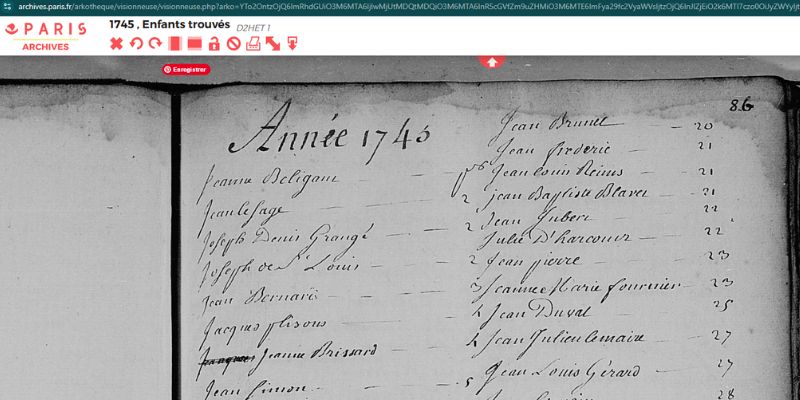 archives.paris.fr/arkotheque/visionneuse/visionneuse.php?arko=
PARIS
ARCHIVES
1745 , Enfants trouvés D2HET 1
Enregistrer
86
Année 1745
Jeanne Beligant
Jean le Sage
Joseph Denis Grangé
Joseph de St Louis
Jean Bernard
Jacques plisons
Jeanne Brissard
Jean Simon
Jean Brunet 20
Jean frederic 21
Jean louis Reims 21
2 jean Baptiste Blavet 21
2 Jean Jubert 22
Julie D'harcourt 22
2 Jean pierre 23
3 Jeanne Marie fournier 23
4 Jean Duval 25
4 Jean Julien lemaire 27
Jean Louis Gérard 27
5
28